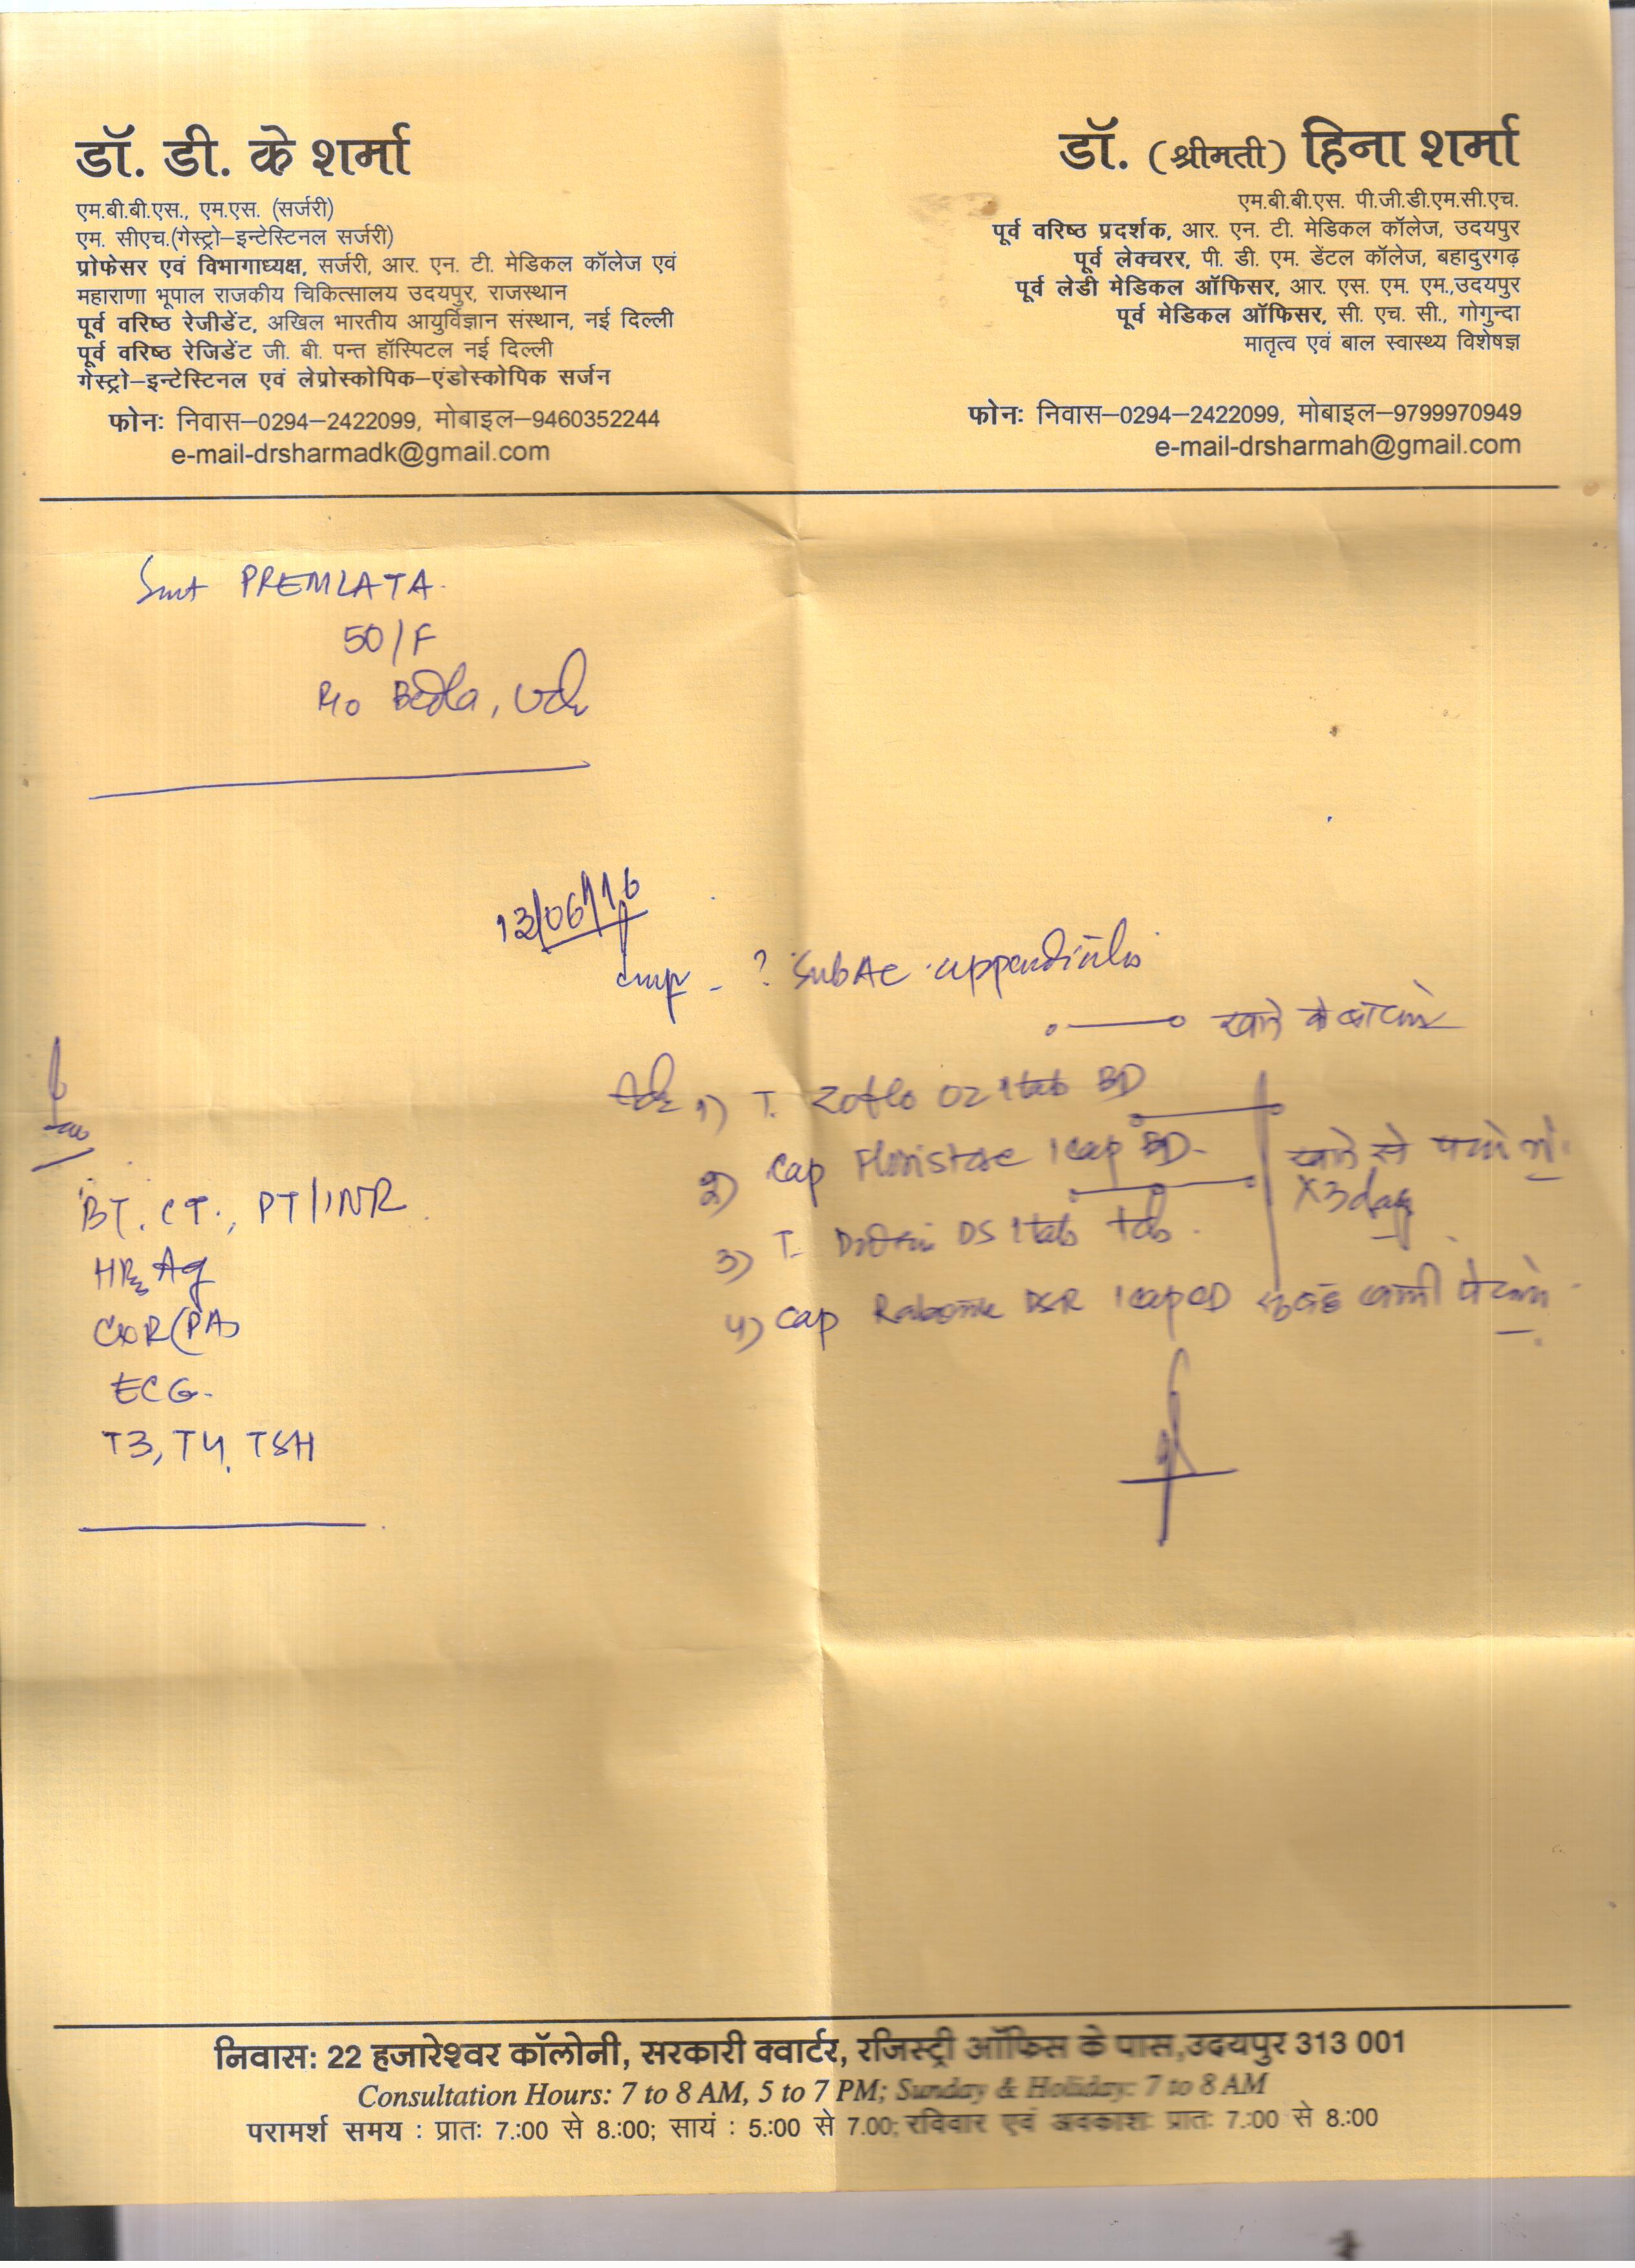 डॉ. डी. के शर्मा
एम.बी.बी.एस., एम.एस. (सर्जरी)
एम. सीएच.(गेस्ट्रो–इन्टेस्टिनल सर्जरी)
प्रोफेसर एवं विभागाध्यक्ष, सर्जरी, आर. एन. टी. मेडिकल कॉलेज एवं
महाराणा भूपाल राजकीय चिकित्सालय उदयपुर, राजस्थान
पूर्व वरिष्ठ रेजीडेंट, अखिल भारतीय आयुर्विज्ञान संस्थान, नई दिल्ली
पूर्व वरिष्ठ रेजिडेंट जी. बी. पन्त हॉस्पिटल नई दिल्ली
गेस्ट्रो–इन्टेस्टिनल एवं लेप्रोस्कोपिक–एंडोस्कोपिक सर्जन
फोन: निवास–0294–2422099, मोबाइल–9460352244
e-mail-drsharmadk@gmail.com
डॉ. (श्रीमती) हिना शर्मा
एम.बी.बी.एस. पी.जी.डी.एम.सी.एच.
पूर्व वरिष्ठ प्रदर्शक, आर. एन. टी. मेडिकल कॉलेज, उदयपुर
पूर्व लेक्चरर, पी. डी. एम. डेंटल कॉलेज, बहादुरगढ़
पूर्व लेडी मेडिकल ऑफिसर, आर. एस. एम. एम.,उदयपुर
पूर्व मेडिकल ऑफिसर, सी. एच. सी., गोगुन्दा
मातृत्व एवं बाल स्वास्थ्य विशेषज्ञ
फोन: निवास–0294–2422099, मोबाइल–9799970949
e-mail-drsharmah@gmail.com
Smt PREMLATA
50/F
R/o Bedla, Udr
13/06/16
? SubAc appendicitis
खाने के बाद में
Adv 1) T. Zoflo OZ 1tab BD
2) Cap Floristore 1cap BD
खाने से पहले
X3days
3) T. DS 1tab tds
4) Cap DSR 1cap OD सुबह खाली पेट
BT. CT., PT/INR
HBsAg
CXR(PA)
ECG.
T3, T4, TSH
निवास: 22 हजारेश्वर कॉलोनी, सरकारी क्वार्टर, रजिस्ट्री ऑफिस के पास,उदयपुर 313 001
Consultation Hours: 7 to 8 AM, 5 to 7 PM; Sunday & Holiday: 7 to 8 AM
परामर्श समय : प्रातः 7.:00 से 8.:00; सायं : 5.:00 से 7.00; रविवार एवं अवकाश: प्रातः 7.:00 से 8.:00